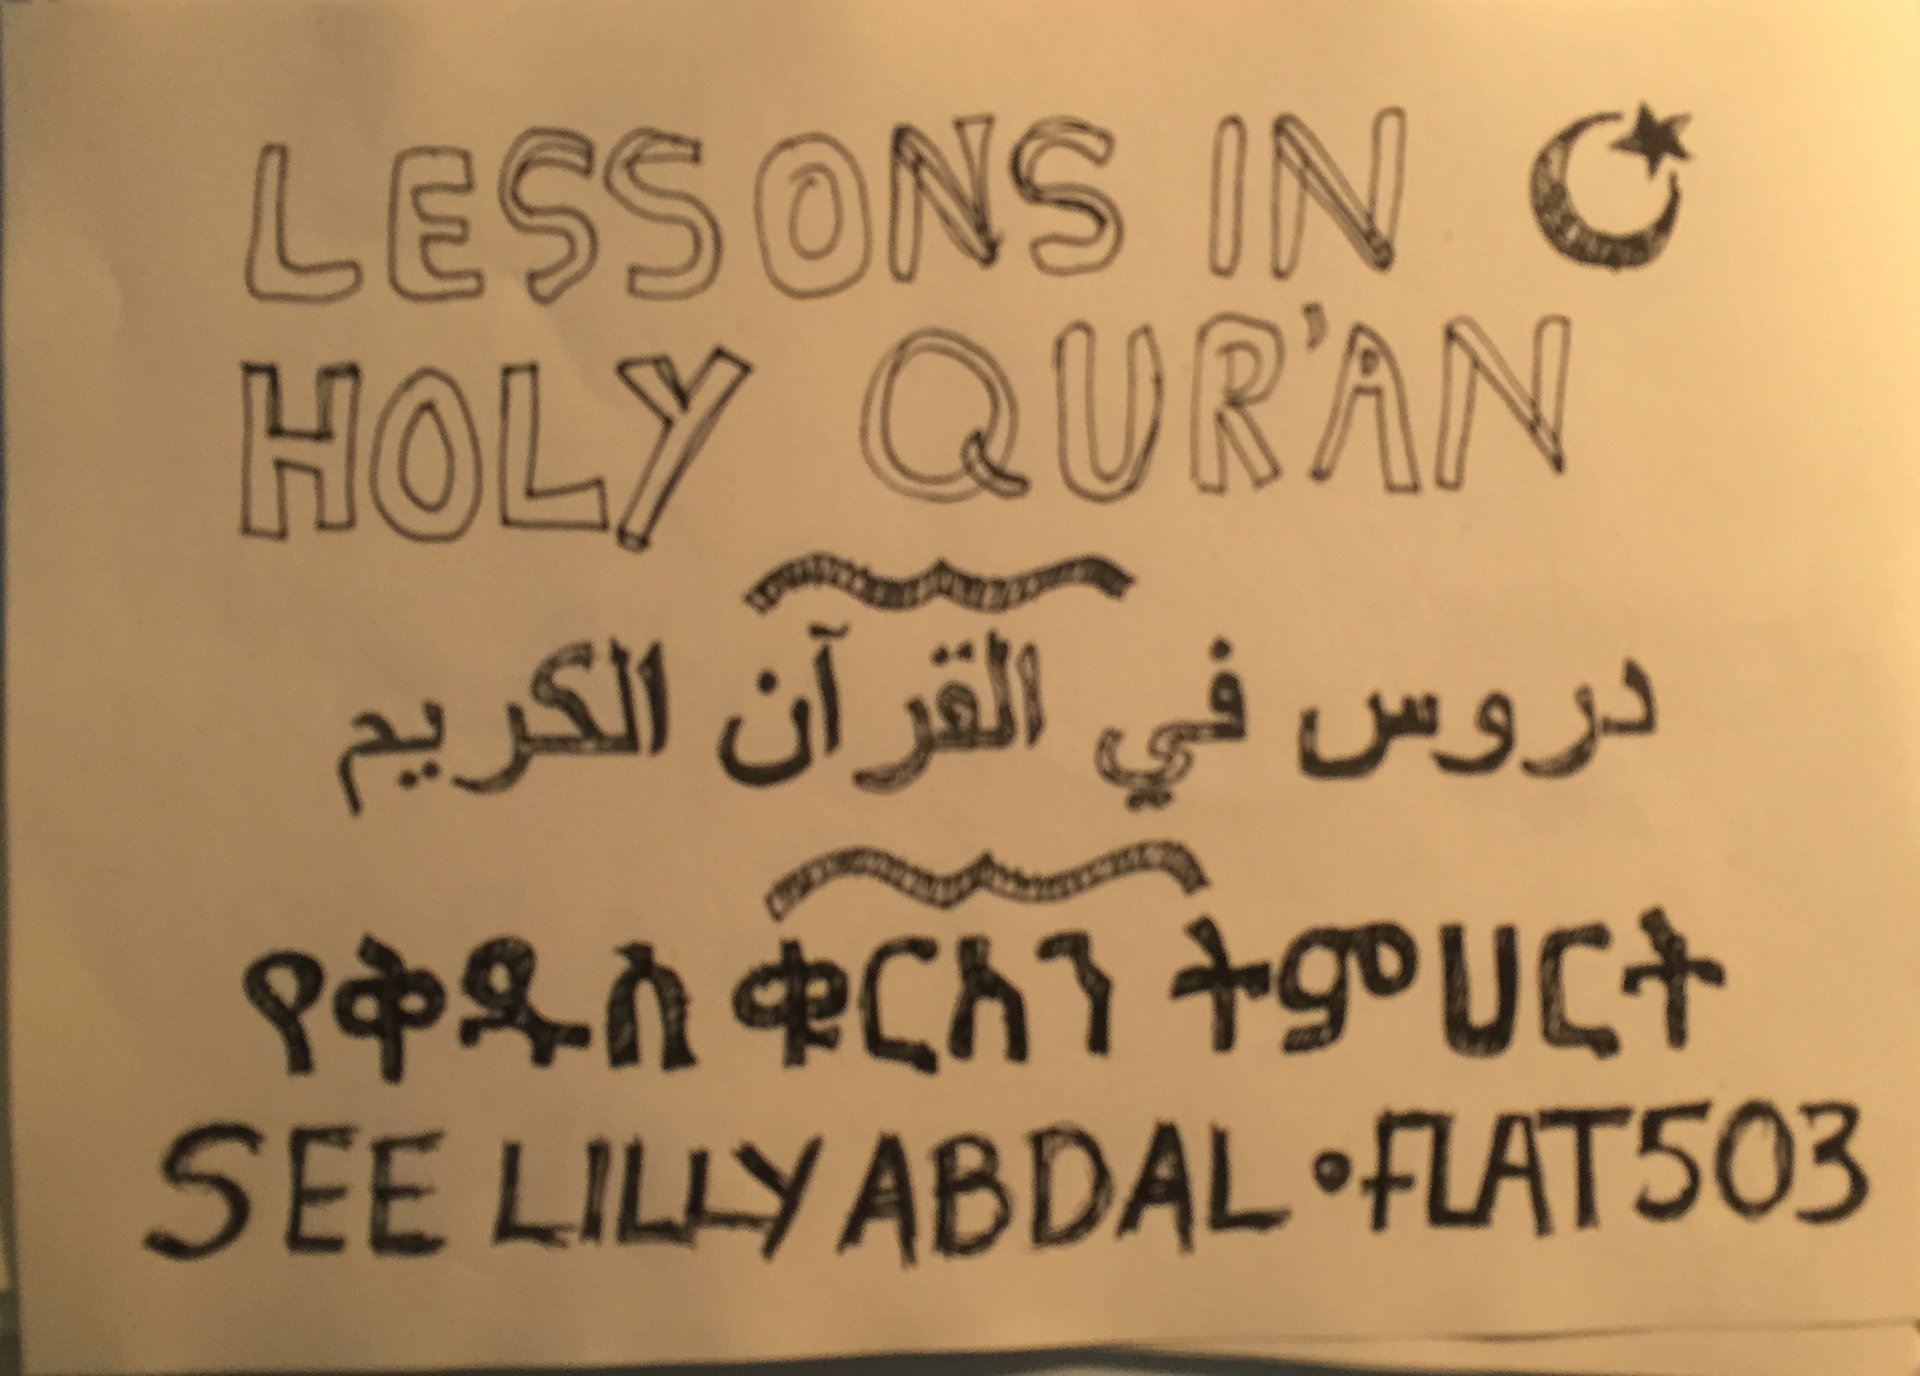 LESSONS IN
HOLY QUR'AN
دروس في القرآن الكريم
የቅዱስ ቁርአን ትምህርት
SEE LILLY ABDAL • FLAT 503